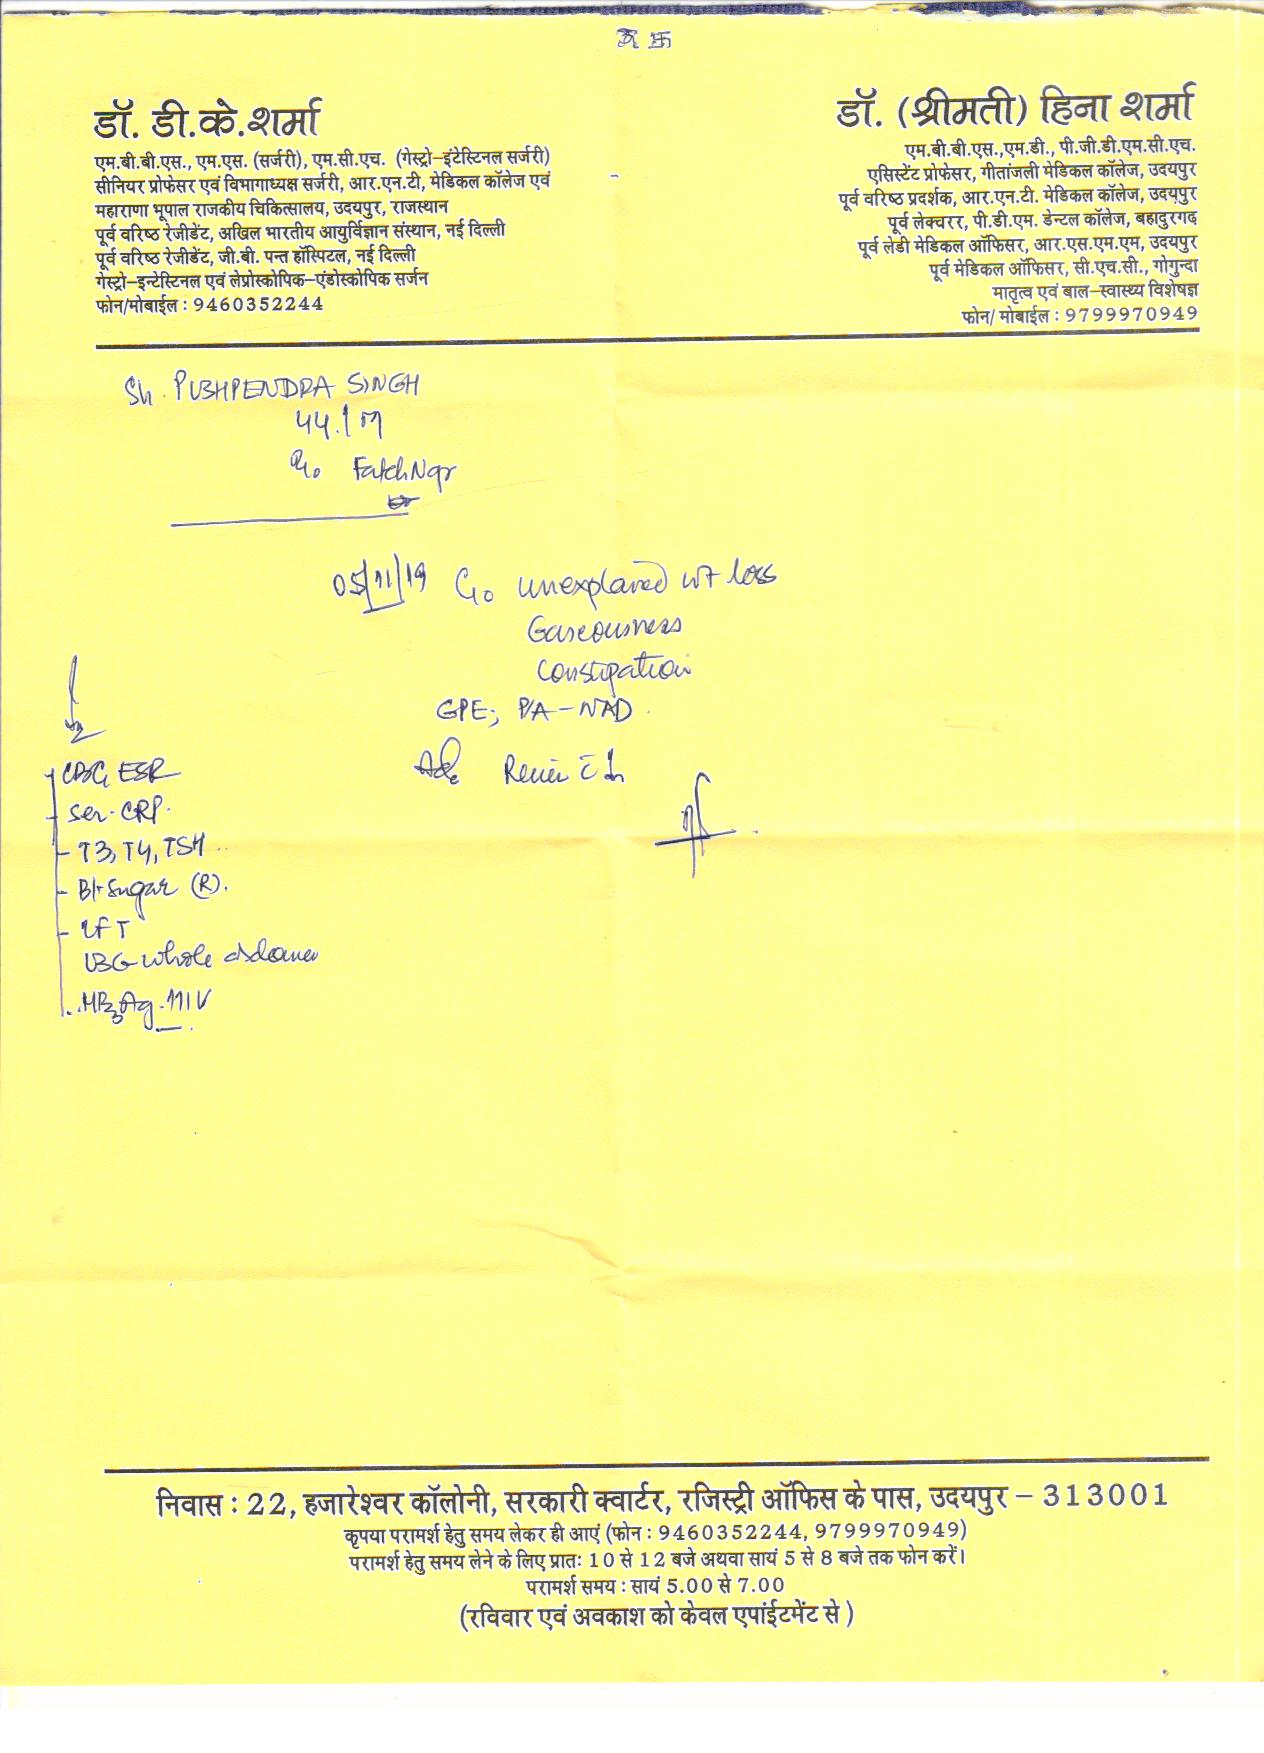 डॉ. डी.के.शर्मा
एम.बी.बी.एस., एम.एस. (सर्जरी), एम.सी.एच. (गेस्ट्रो-इंटेस्टिनल सर्जरी)
सीनियर प्रोफेसर एवं विभागाध्यक्ष सर्जरी, आर.एन.टी, मेडिकल कॉलेज एवं
महाराणा भूपाल राजकीय चिकित्सालय, उदयपुर, राजस्थान
पूर्व वरिष्ठ रेजीडेंट, अखिल भारतीय आयुर्विज्ञान संस्थान, नई दिल्ली
पूर्व वरिष्ठ रेजीडेंट, जी.बी. पन्त हॉस्पिटल, नई दिल्ली
गेस्ट्रो-इन्टेस्टिनल एवं लेप्रोस्कोपिक-एंडोस्कोपिक सर्जन
फोन/मोबाईल : 9460352244
डॉ. (श्रीमती) हिना शर्मा
एम.बी.बी.एस.,एम.डी., पी.जी.डी.एम.सी.एच.
एसिस्टेंट प्रोफेसर, गीतांजली मेडिकल कॉलेज, उदयपुर
पूर्व वरिष्ठ प्रदर्शक, आर.एन.टी. मेडिकल कॉलेज, उदयपुर
पूर्व लेक्चरर, पी.डी.एम. डेन्टल कॉलेज, बहादुरगढ़
पूर्व लेडी मेडिकल ऑफिसर, आर.एस.एम.एम, उदयपुर
पूर्व मेडिकल ऑफिसर, सी.एच.सी., गोगुन्दा
मातृत्व एवं बाल-स्वास्थ्य विशेषज्ञ
फोन/ मोबाईल : 9799970949
Sh. PUSHPENDRA SINGH
44.1 M
R/o FatehNgr
05/11/19 C/o unexplained wt loss
Gaseousness
Constipation
GPE; P/A-NAD
Adv Review c̄
CBC, ESR
Ser. CRP.
T3, T4, TSH
Bl. Sugar (R).
LFT
USG whole abdomen
HBsAg. HIV
निवास : 22, हजारेश्वर कॉलोनी, सरकारी क्वार्टर, रजिस्ट्री ऑफिस के पास, उदयपुर - 313001
कृपया परामर्श हेतु समय लेकर ही आएं (फोन : 9460352244, 9799970949)
परामर्श हेतु समय लेने के लिए प्रातः 10 से 12 बजे अथवा सायं 5 से 8 बजे तक फोन करें।
परामर्श समय : सायं 5.00 से 7.00
(रविवार एवं अवकाश को केवल एपांईटमेंट से )